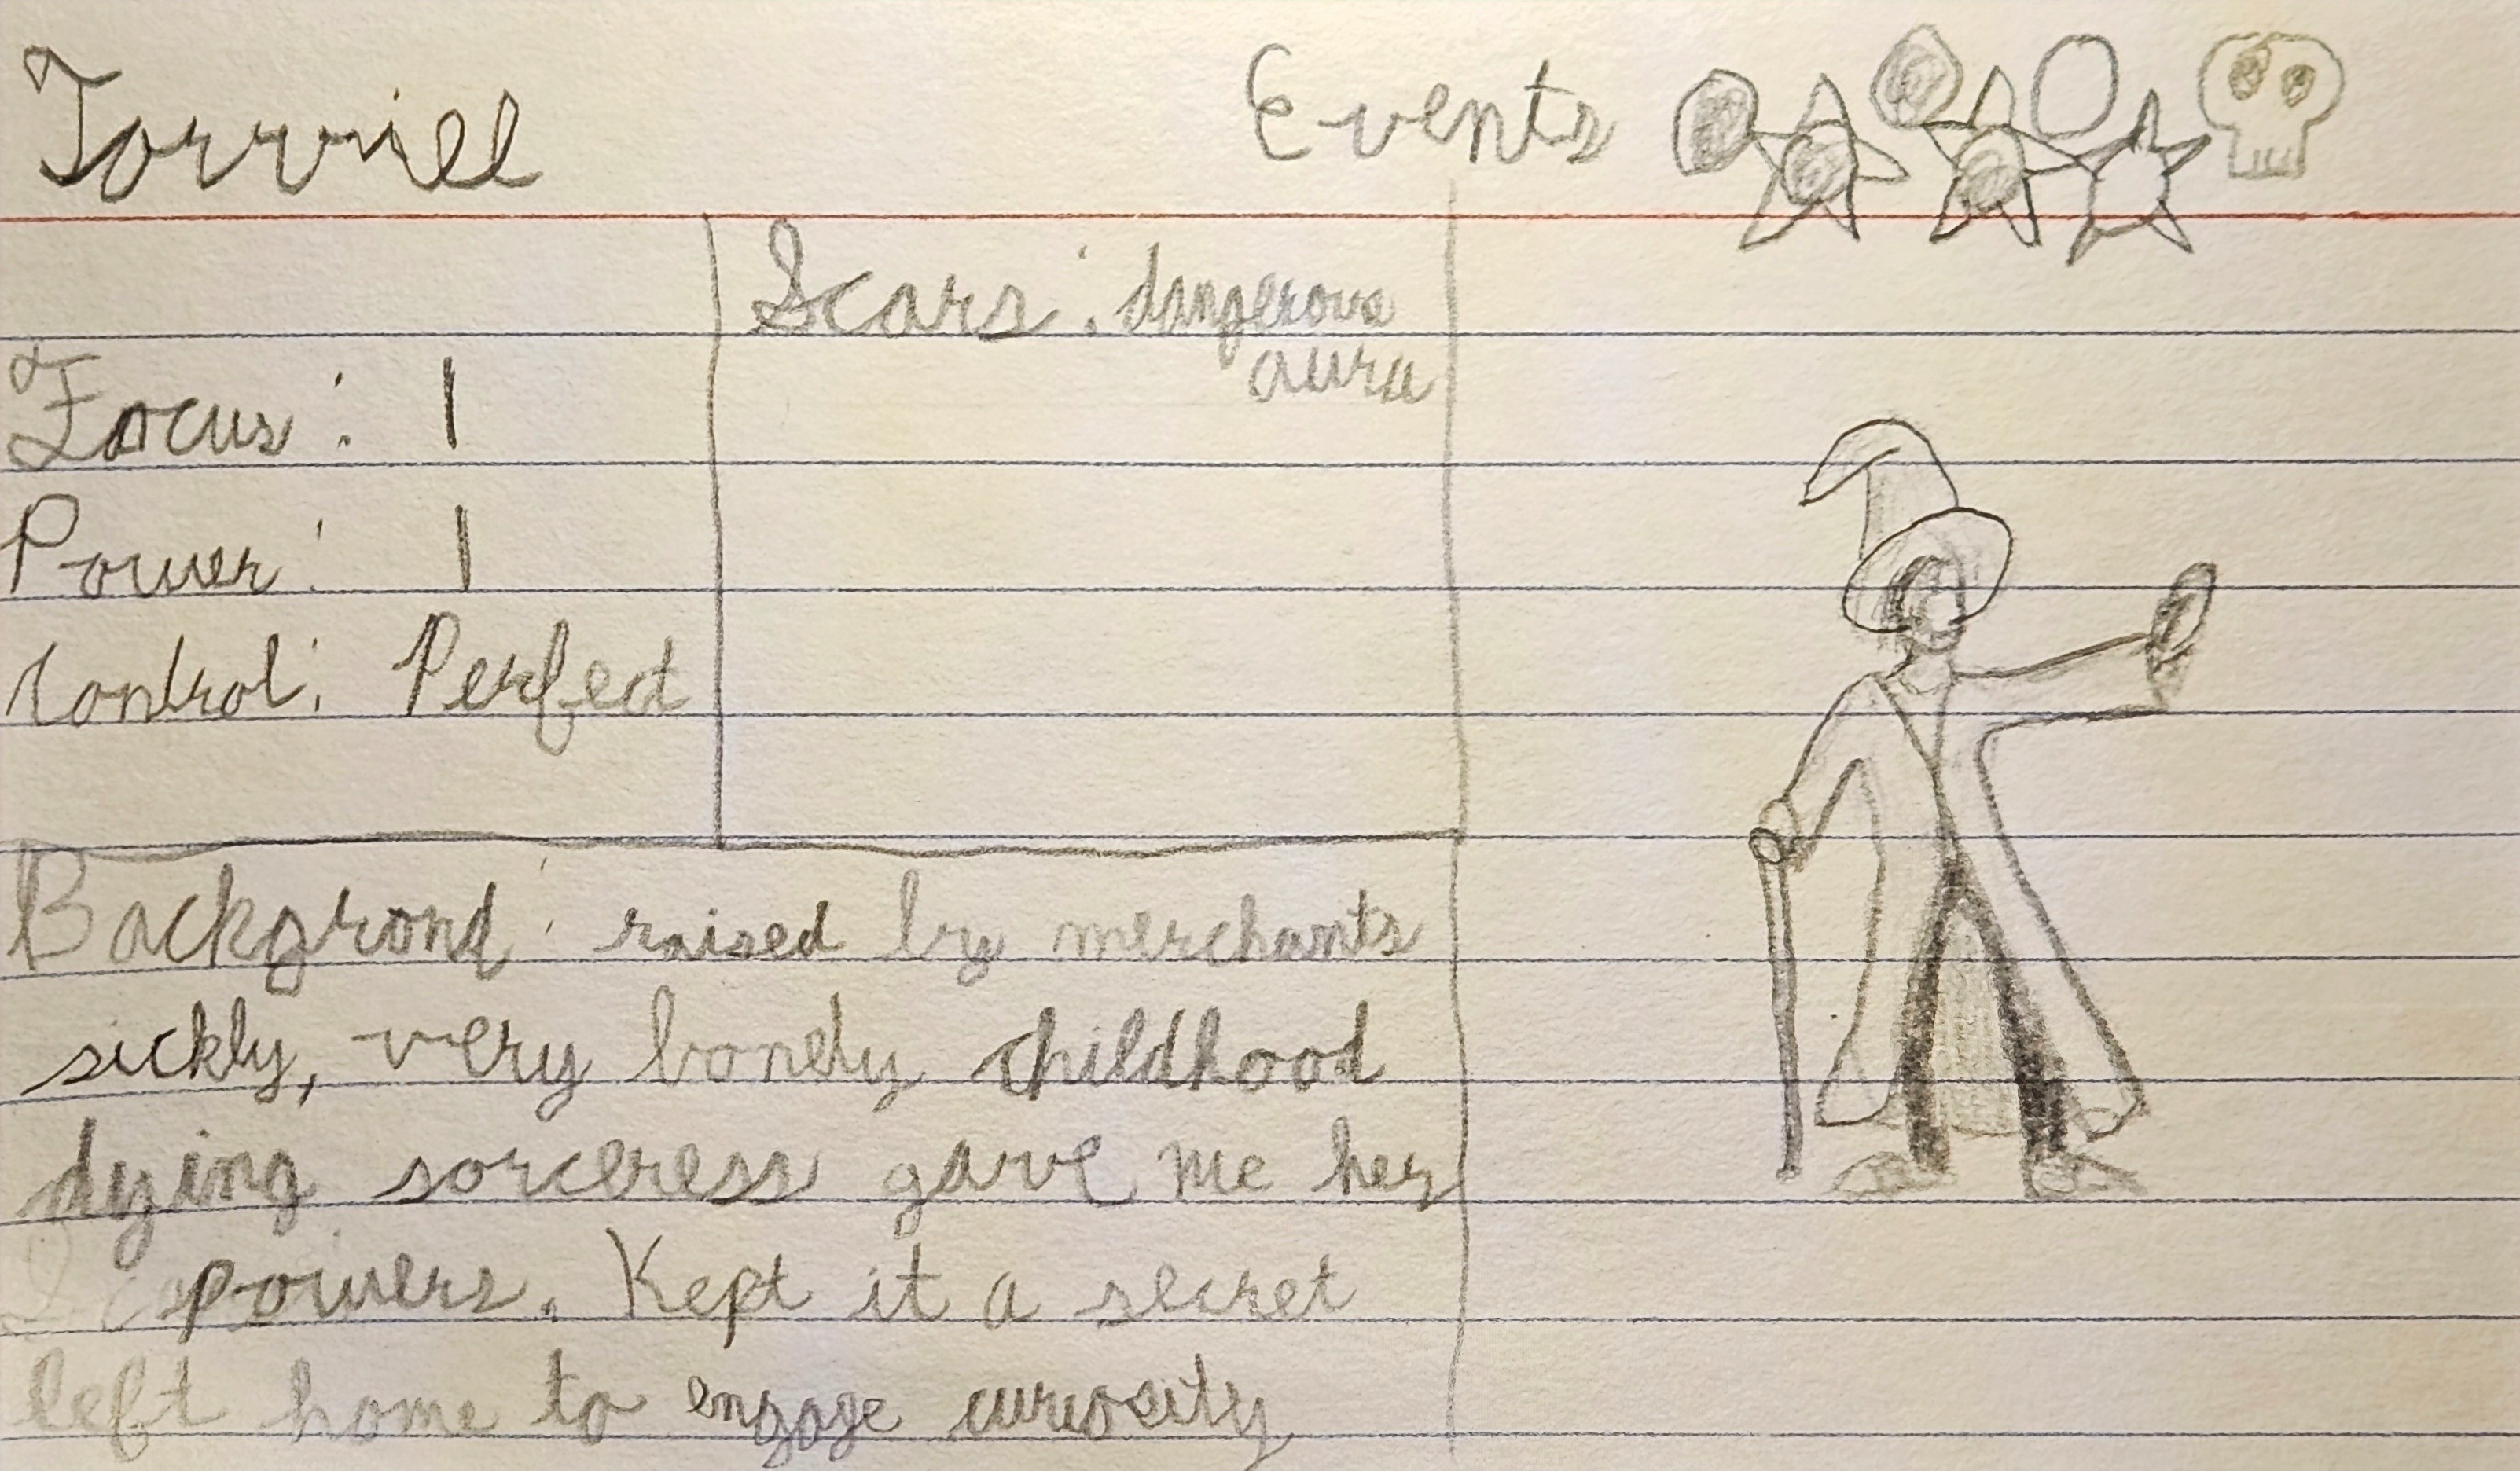 Torrviell
Events
Scars: dangerous
aura
Focus: 1
Power: 1
control: Perfect
Backgrond: raised by merchants
sickly, very lonely childhood
dying sorceress gave me her
powers. Kept it a secret
left home to engage curiosity